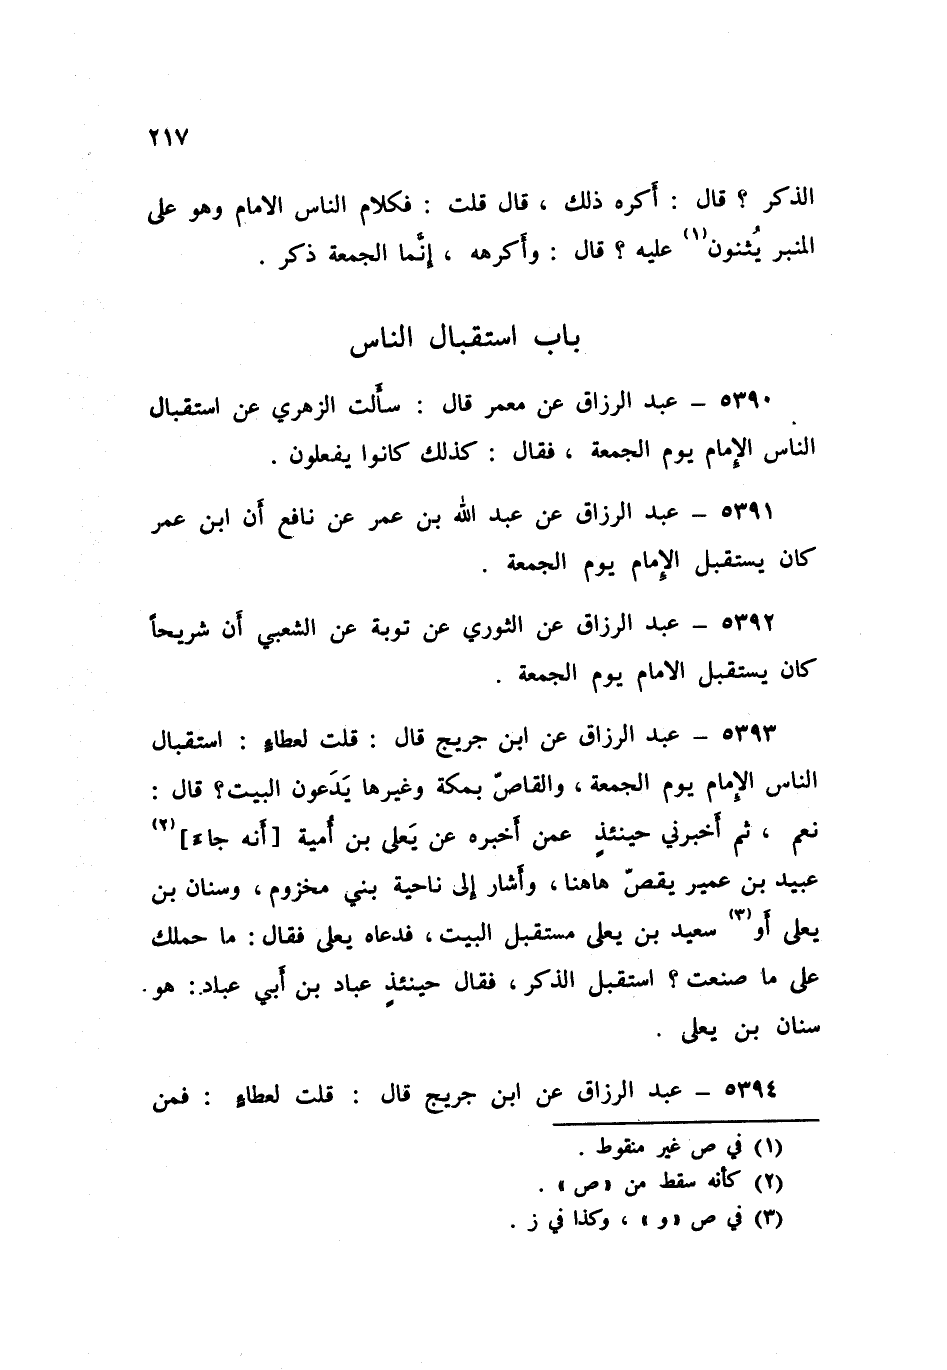 ٢١٧
الذكر ؟ قال : أَكره ذلك ، قال قلت : فكلام الناس الامام وهو على
المنبر يُثنون(١) عليه ؟ قال : وأَكرهه ، إنَّما الجمعة ذكر .
باب استقبال الناس
٥٣٩٠ – عبد الرزاق عن معمر قال : سأَلت الزهري عن استقبال
الناس الإمام يوم الجمعة ، فقال : كذلك كانوا يفعلون .
٥٣٩١ – عبد الرزاق عن عبد الله بن عمر عن نافع أَن ابن عمر
كان يستقبل الإمام يوم الجمعة .
٥٣٩٢ – عبد الرزاق عن الثوري عن توبة عن الشعبي أَن شريحاً
كان يستقبل الامام يوم الجمعة .
٥٣٩٣ – عبد الرزاق عن ابن جريج قال : قلت لعطاءٍ : استقبال
الناس الإمام يوم الجمعة ، والقاصّ بمكة وغيرها يَدَعون البيت؟ قال :
نعم ، ثم أَخبرني حينئذٍ عمن أَخبره عن يَعلى بن أُمية [أَنه جاءَ](٢)
عبيد بن عمير يقصّ هاهنا ، وأَشار إلى ناحية بني مخزوم ، وسنان بن
يعلى أَو(٣) سعيد بن يعلى مستقبل البيت ، فدعاه يعلى فقال : ما حملك
على ما صنعت ؟ استقبل الذكر ، فقال حينئذٍ عباد بن أَبي عباد : هو
سنان بن يعلى .
٥٣٩٤ – عبد الرزاق عن ابن جريج قال : قلت لعطاءٍ : فمن
(١) في ص غير منقوط .
(٢) كأنه سقط من «ص» .
(٣) في ص «و» ، وكذا في ز .